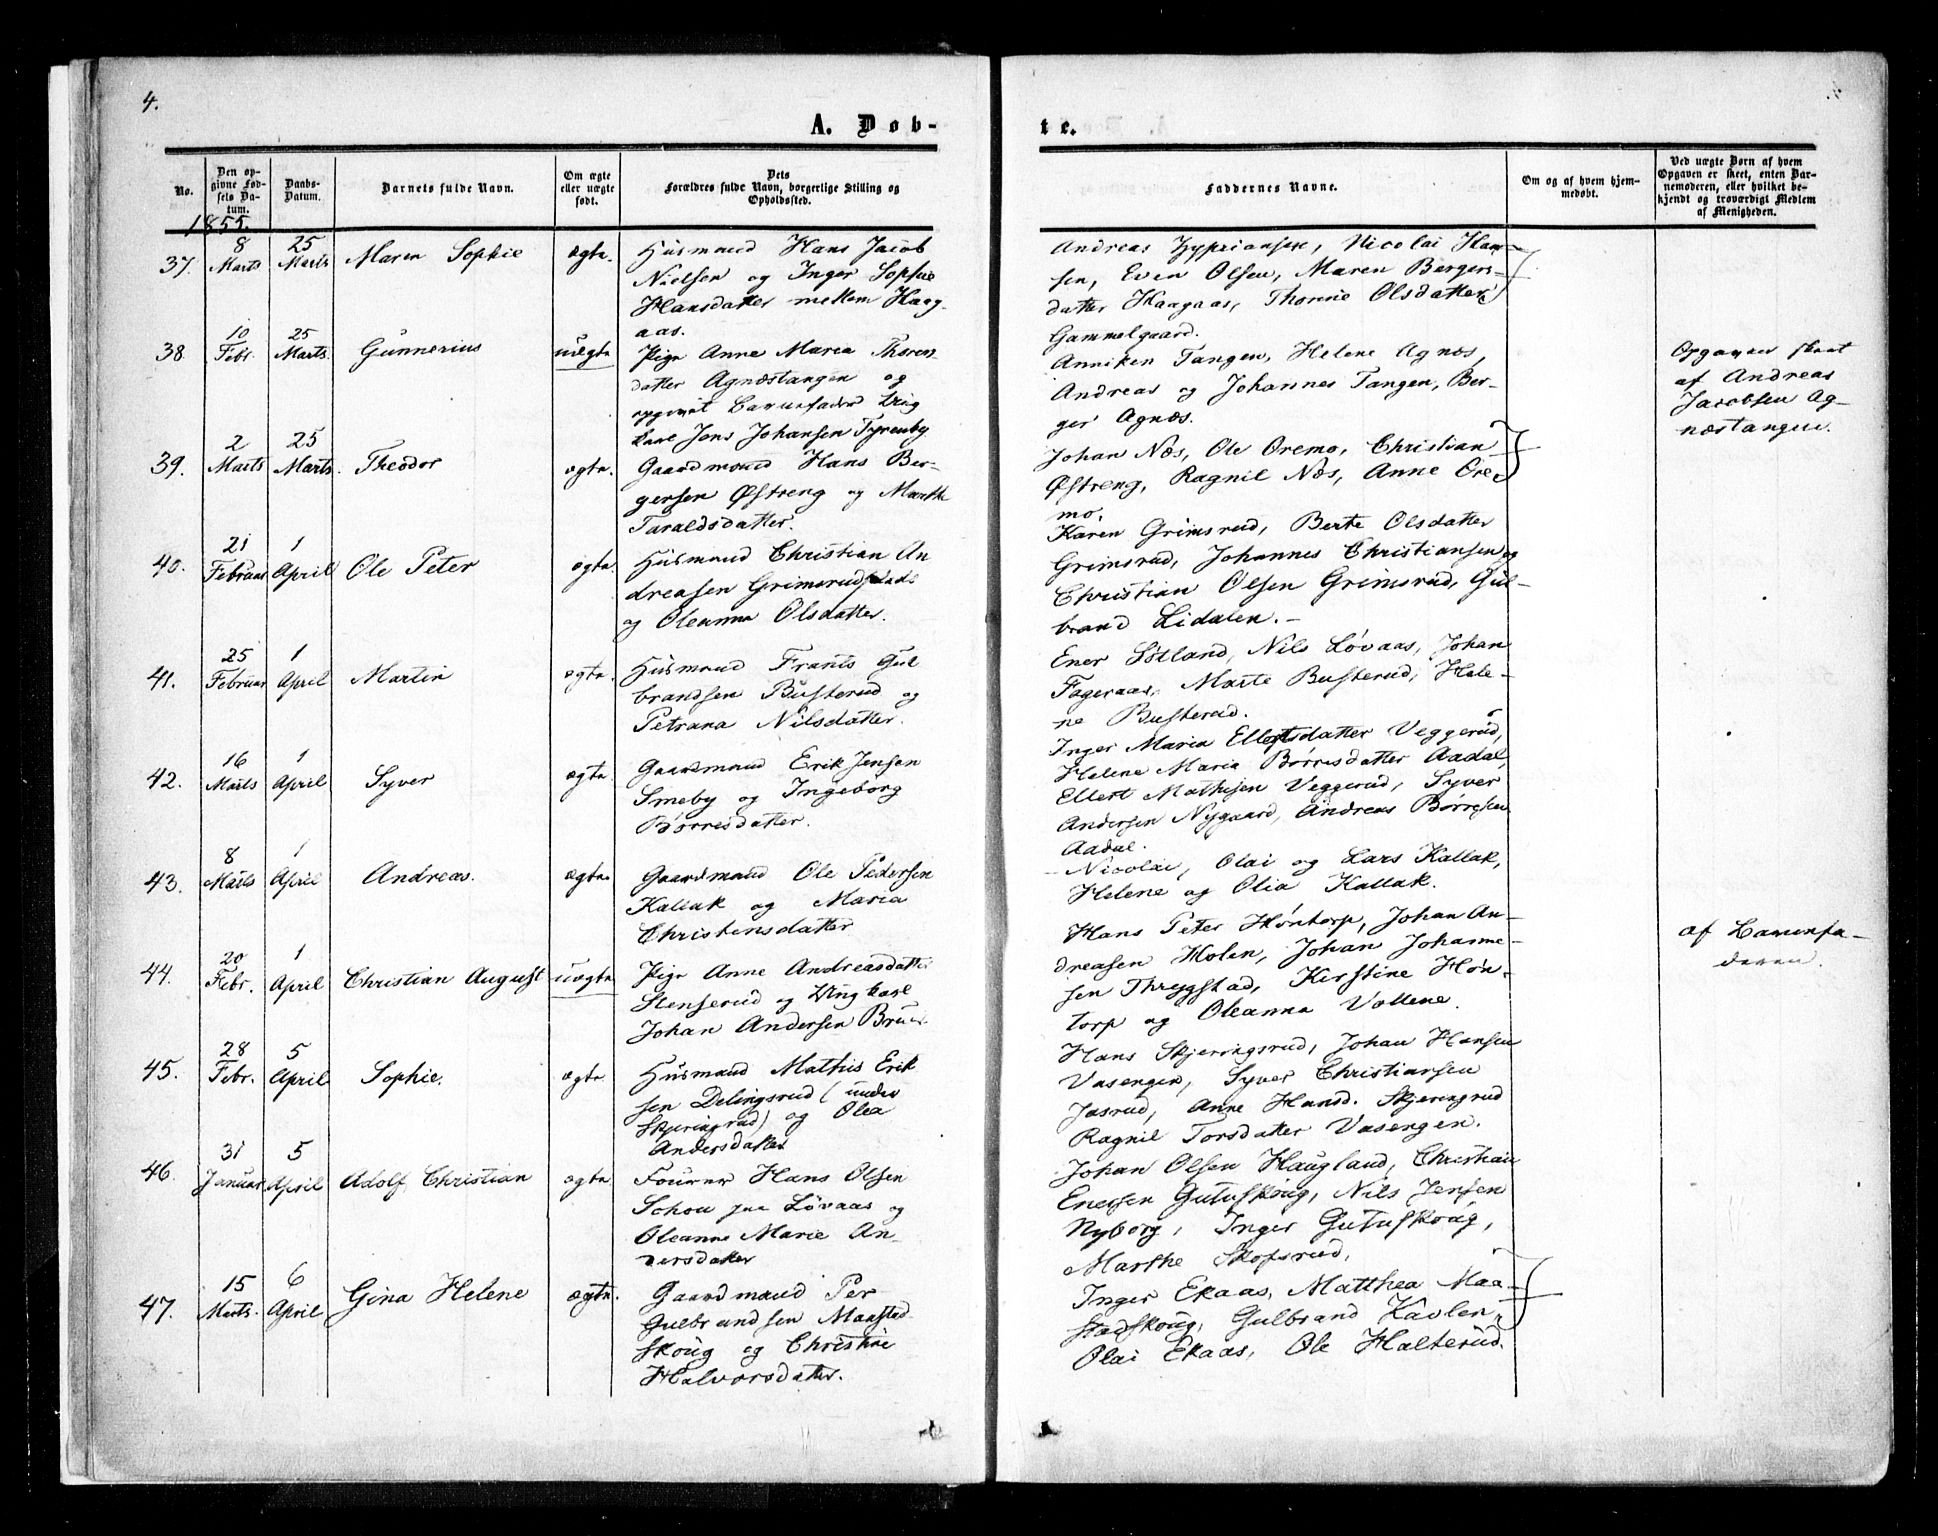 4.
A. Døb-
te.
No.
Den op-
givne Fød-
sels Da-
tum.
Daabs-
Datum.
Barnets fulde Navn.
Om ægte
eller uægte
født.
Dets
Forældres fulde Navn, borgerlige Stilling og
Opholdssted.
Faddernes Navne.
Om og af hvem hjem-
medøbt.
Ved uægte Børn af hvem
Opgaven er skeet, enten Bar-
nemoderen, eller hvilket be-
kjendt og troværdigt Medlem
af Menigheden.
1855.
37.
8
Marts
25
Marts
Maren Sophie
ægte.
Husmand Hans Jacob
Nielsen og Inger Sophie
Hansdatter mellem Haag-
aas.
Andreas Zyprianssen, Nicolai Han-
sen, Even Olsen, Maren Bergers-
datter Haagaas, Thorine Olsdatter
Gammelgaard.
38.
10
Febr.
25
Marts.
Gunnerius
uægte
Pige Anne Maria Thores
datter Agnæstangen og
opgivet Barnefader Ung
karl Jens Johansen Tyrenby
Anniken Tangen, Helene Agnæs,
Andreas og Johannes Tangen, Ber-
ger Agnæs.
Opgaven skeet
af Andreas
Jacobsen Ag-
næstangen.
39.
2
Marts
25
Marts.
Theodor
ægte.
Gaardmand Hans Ber-
gersen Østreng og Marthe
Taraldsdatter.
Johan Næs, Ole Oremo, Christian
Østreng, Ragnil Næs, Anne Ore
mo.
40.
21
Februar
1
April
Ole Peter
ægte.
Husmand Christian An
dreasen Grimsrud
og Oleanna Olsdatter.
Karen Grimsrud, Berte Olsdatter
Grimsrud, Johannes Christiansen og
Christian Olsen Grimsrud, Gul-
brand Lidalen.-
41.
25
Februar
1
April
Martin
ægte.
Husmand Frants Gul
brandsen Busterud og
Petrana Nilsdatter.
Ener Sötland, Nils Løvaas, Johan
Fageraas, Marte Busterud, Hele-
ne Busterud.
42.
16
Marts
1
April
Syver
ægte.
Gaardmand Erik Jensen
Smeby og Ingeborg
Børresdatter.
Inger Maria Ellertsdatter Veggerud,
Helene Maria Børresdatter Aadal,
Ellert Mathisen Veggerud, Syver
Andersen Nygaard, Andreas Børresen
Aadal.
43.
8
Marts
1
April
Andreas.
ægte.
Gaardmand Ole Pedersen
Kallak og Maria
Christensdatter
Nicolai, Olai og Lars Kallak,
Helene og Olia Kallak.
44.
20
Febr.
1
April
Christian August
uægte
Pige Anne Andreasdatter
Stenserud og Ungkarl
Johan Andersen
Hans Peter Høntorp, Johan An-
dreasen Molen, Johan Johanne-
sen Thrygstad, Kirstine Høn-
torp og Oleanna Vollene.
af Barnefa-
deren.
45.
28
Febr.
5
April
Sophie.
ægte
Husmand Mathis Erik
sen Delingsrud (under
Skjeringrud) og Olea
Andersdatter
Hans Skjeringsrud, Johan Hansen
Vasengen, Syver Christiansen
Jasrud, Anne Hansd. Skjeringrud
Ragnil Torsdatter Vasengen.
46.
31
Januar
5
April
Adolf Christian
ægte.
Fourer Hans Olsen
Schou paa Løvaas og
Oleanne Marie An-
dersdatter
Johan Olsen Haugland, Christian
Enersen Gutuskoug, Nils Jensen
Nyborg, Inger Gutuskoug,
Marthe Skofsrud,
47.
15
Marts.
6
April
Gina Helene
ægte.
Gaardmand Per
Gulbrandsen Maastad-
skoug og Christine
Halvorsdatter.
Inger Ekaas, Matthea Maa-
stadskoug, Gulbrand Kavlen,
Olai Ekaas, Ole Halterud.